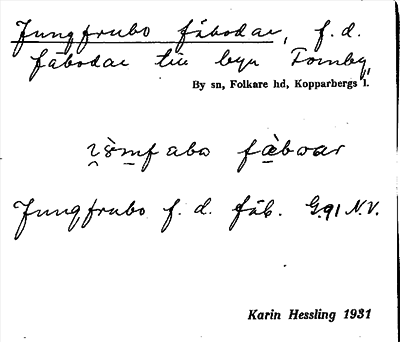 Jungfrubo fäbodar, f.d.
fäbodar till byn Tomby,
By sn, Folkare hd, Kopparbergs l.
fäboar
Jungfrubo f. d. fäb. G91 N.V.
Karin Hessling 1931